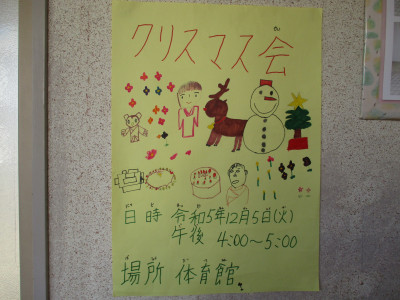 クリスマス会
日時 令和5年12月5日(火)
午後 4:00～5:00
場所 体育館